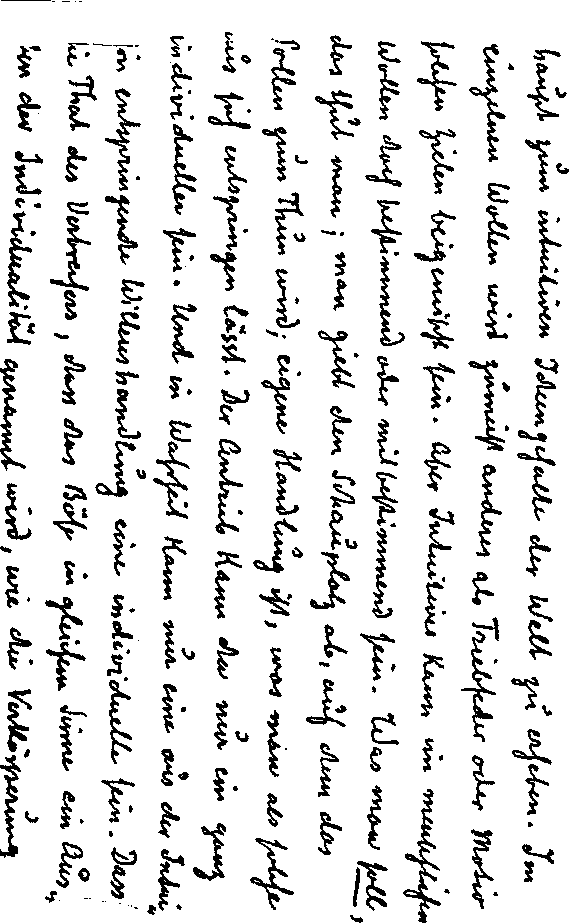 haupt zum intuitiven Ideengehalte der Welt zu erheben. Im
einzelnen Wollen wird zumeist anderes als Triebfeder oder Motiv
solchen Zielen beigemischt sein. Aber Intuitives kann im menschlichen
Wollen doch bestimmend oder mitbestimmend sein. Was man soll,
das thut man; man giebt den Schauplatz ab, auf dem das
Sollen zum Thun wird; eigene Handlung ist, was man als solche
aus sich entspringen lässt. Der Antrieb kann da nur ein ganz
individueller sein. Und in Wahrheit kann nur eine aus der Intui„
ion entspringende Willenshandlung eine individuelle sein. Dass
ie That des Verbrechers, dass das Böse in gleichem Sinne ein Aus„
der Individualität genannt wird, wie die Verkörperung